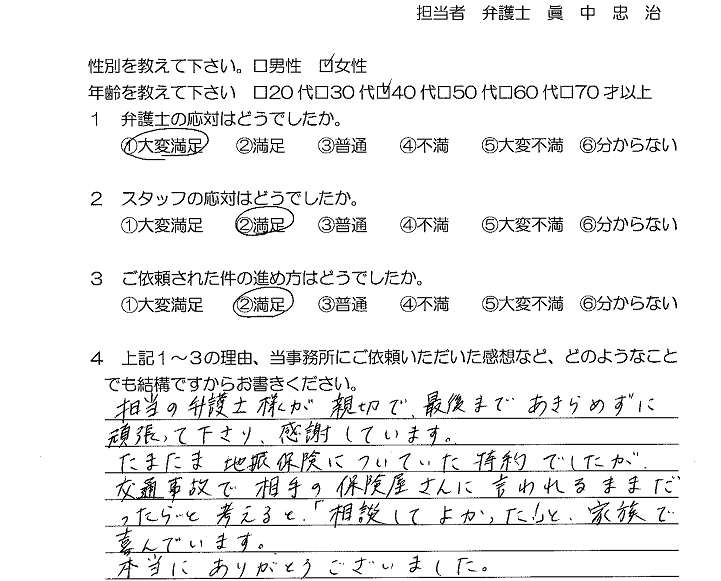 担当者 弁護士 眞 中 忠 治
性別を教えて下さい。□男性 ☑女性
年齢を教えて下さい □20代□30代☑40代□50代□60代□70才以上
1 弁護士の応対はどうでしたか。
①大変満足 ②満足 ③普通 ④不満 ⑤大変不満 ⑥分からない
2 スタッフの応対はどうでしたか。
①大変満足 ②満足 ③普通 ④不満 ⑤大変不満 ⑥分からない
3 ご依頼された件の進め方はどうでしたか。
①大変満足 ②満足 ③普通 ④不満 ⑤大変不満 ⑥分からない
4 上記1~3の理由、当事務所にご依頼いただいた感想など、どのようなこと
でも結構ですからお書きください。
担当の弁護士様が親切で、最後まであきらめずに
頑張って下さり、感謝しています。
たまたま地振保険についていた特約でしたが、
交通事故で相手の保険屋さんに言われるままだ
ったら…と考えると、「相談してよかった!」と、家族で
喜んでいます。
本当にありがとうございました。